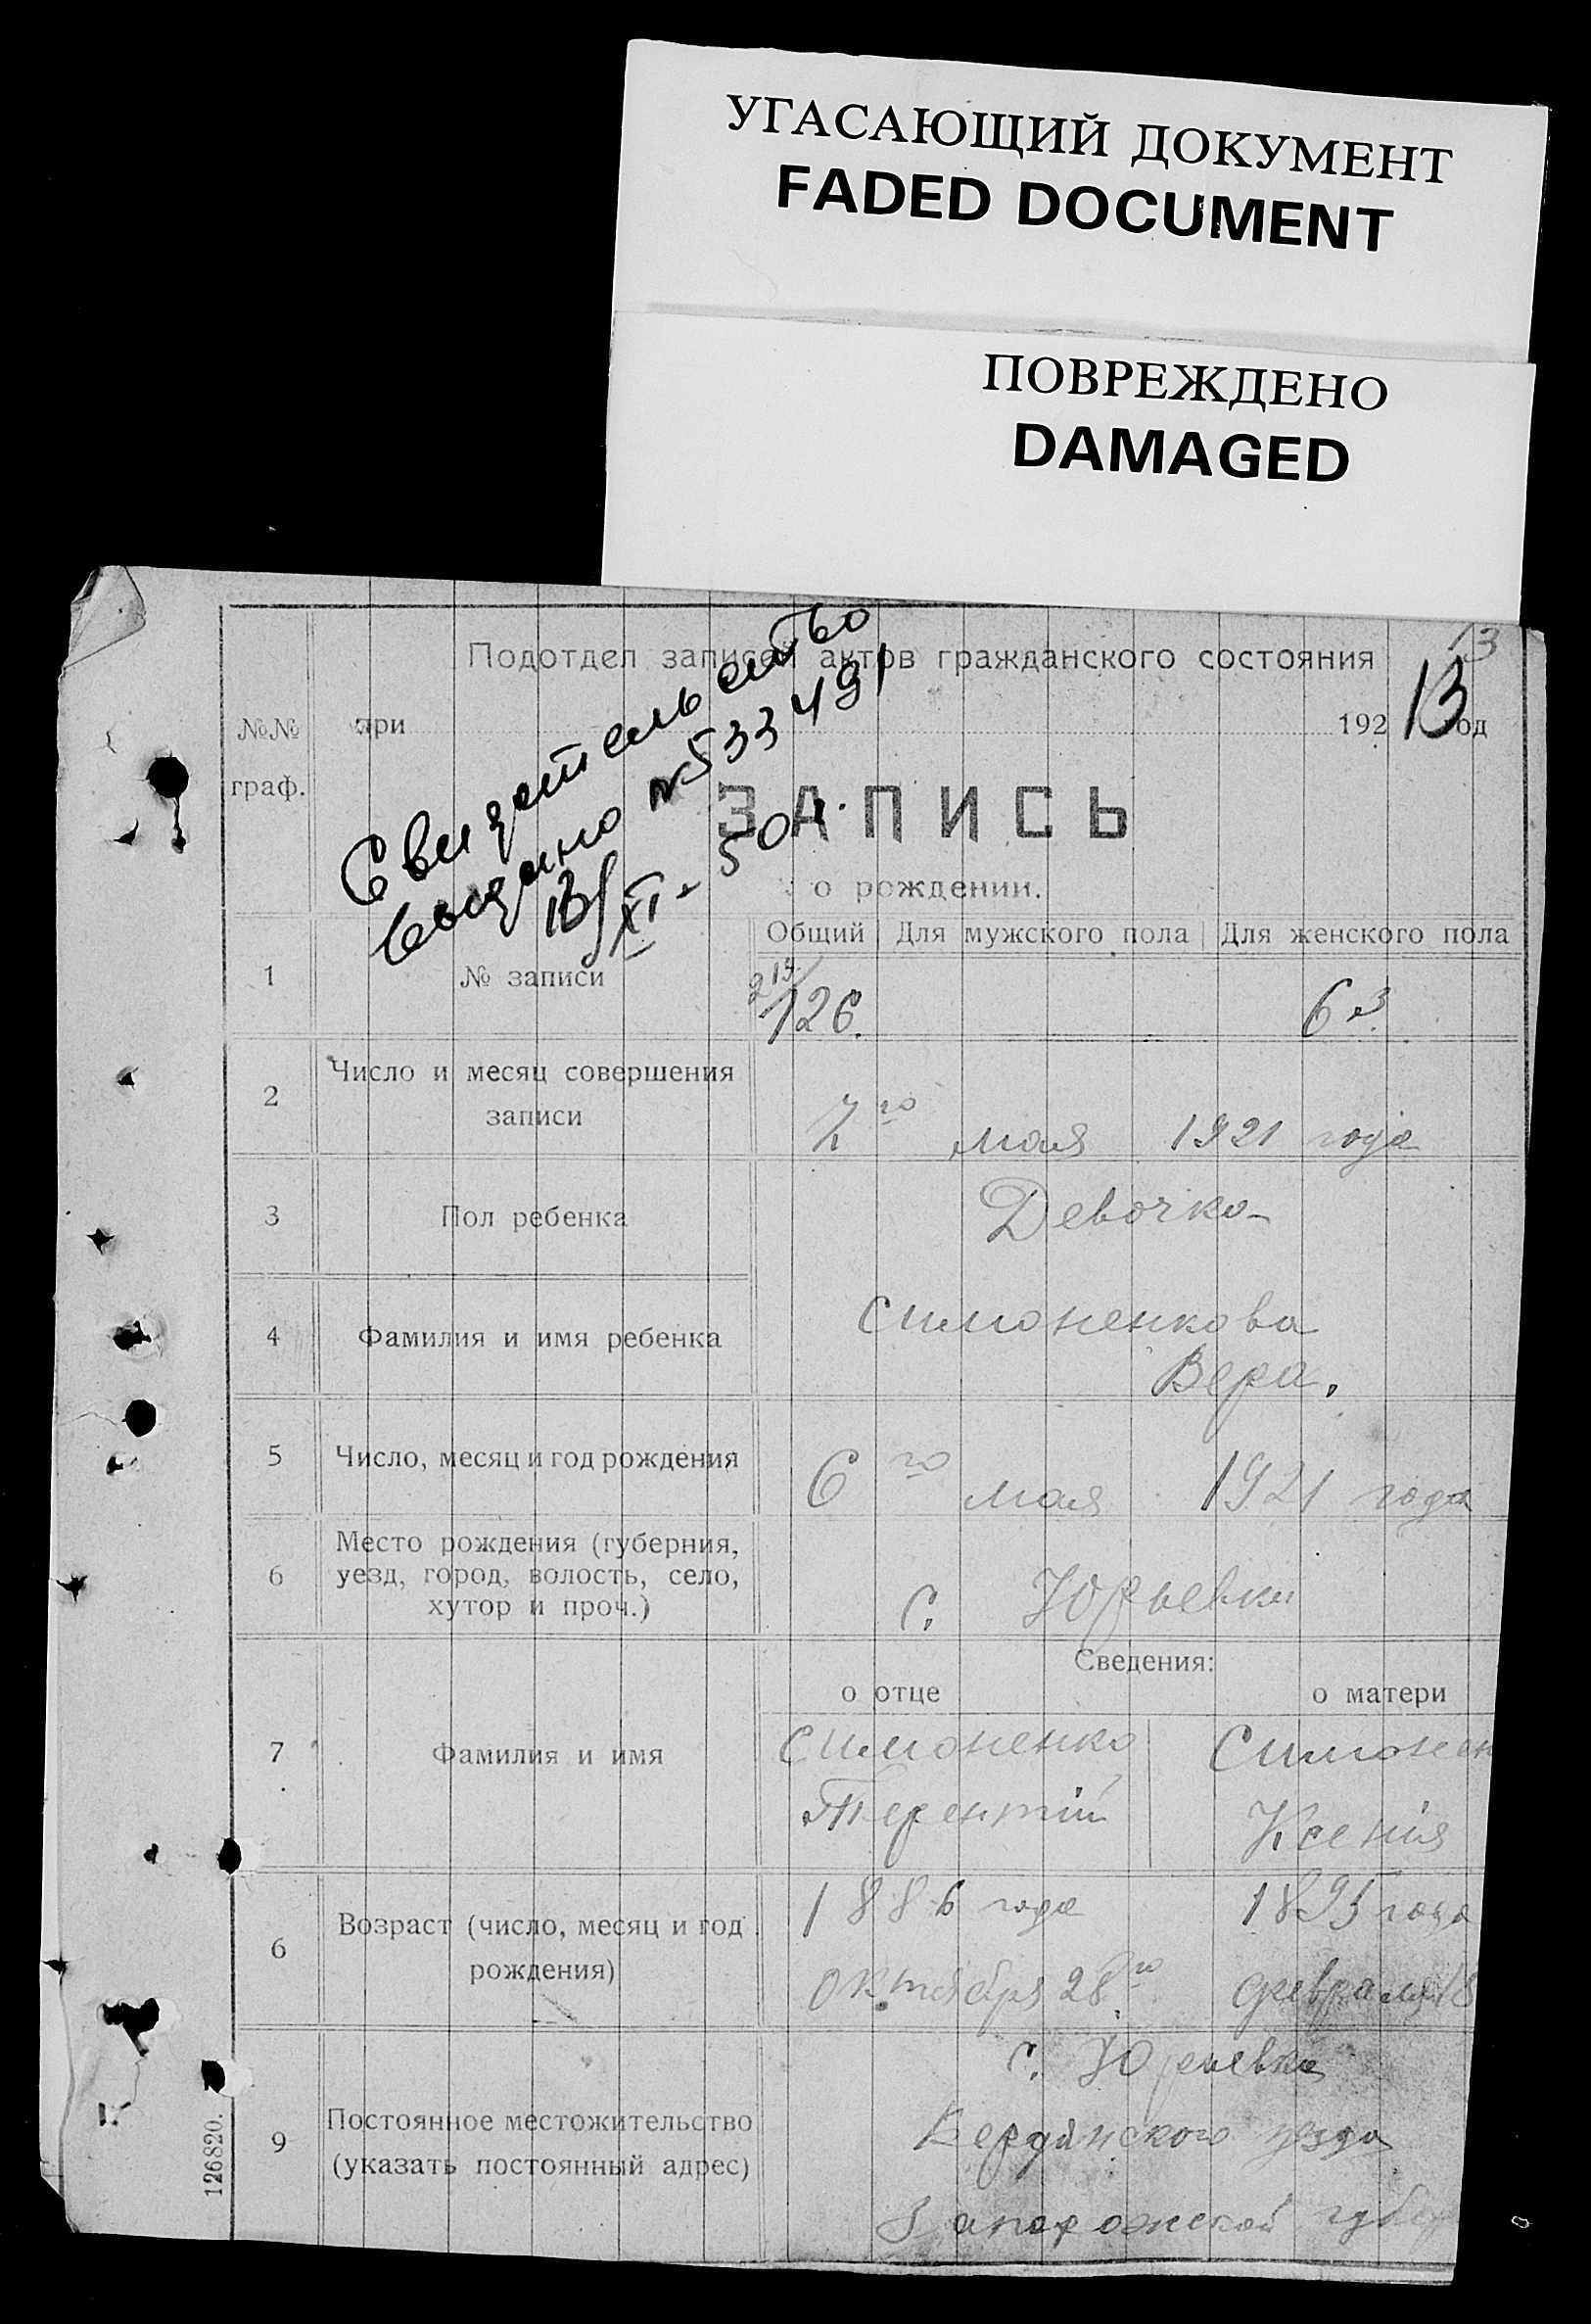 УГАСАЮЩИЙ ДОКУМЕНТ
FADED DOCUMENT
ПОВРЕЖДЕНО
DAMAGED
13
Подотдел записей актов гражданского состояния
№№ граф.
при 192 13 год
Свидетельство
выдано №533491
13/XI-50г.
ЗАПИСЬ
о рождении.
Общий Для мужского пола Для женского пола
1 № записи 126. 63.
2 Число и месяц совершения
записи
7го мая 1921 года
3 Пол ребенка Девочка
4 Фамилия и имя ребенка Симоненкова
Вера.
5 Число, месяц и год рождения 6го мая 1921 года
6 Место рождения (губерния,
уезд, город, волость, село,
хутор и проч.)
с. Юрьевки
Сведения:
о отце о матери
7 Фамилия и имя Симоненко Симонен
Терентій Ксенія
6 Возраст (число, месяц и год
рождения)
1886 года 1895 года
октября 28го февраля 18
9 Постоянное местожительство
(указать постоянный адрес)
с. Юрьевка
Бердянского уезда
Запорожской губер
126820.